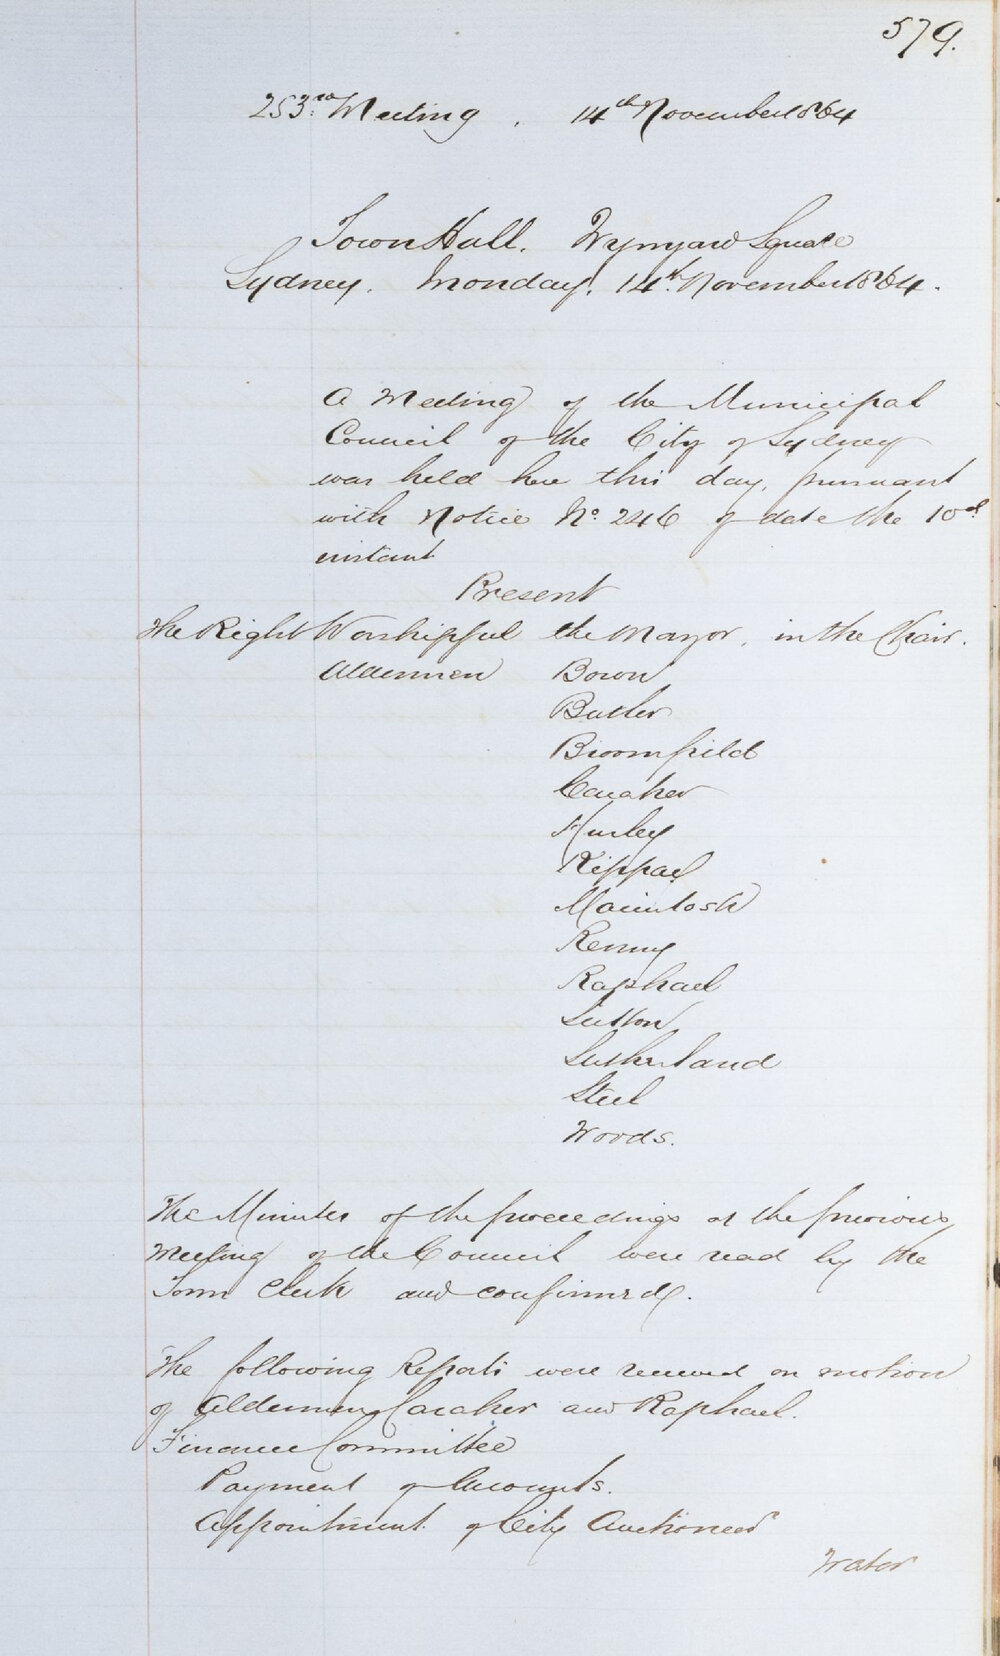 579.
253rd Meeting. 14th November 1864
Town Hall. Wynyard Square
Sydney. Monday. 14th November 1864.
A Meeting of the Municipal
Council of the City of Sydney
was held here this day, pursuant
with Notice No. 246 of date the 10th
instant
Present
The Right Worshipful the Mayor, in the Chair.
Aldermen Bown
Butler
Broomfield
Caraher
Hurley
Kippax
Macintosh
Renny
Raphael
Sutton
Sutherland
Steel
Woods.
The Minutes of the proceedings at the previous
Meeting of the Council were read by the
Town Clerk and confirmed.
The following Reports were received on motion
of Aldermen Caraher and Raphael.
Finance Committee
Payment of Accounts.
Appointment of City Auctioneer
Water